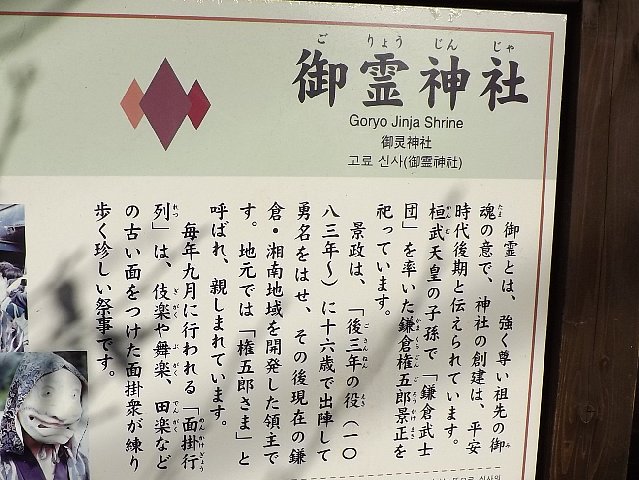 ご りょう じん じゃ
御霊神社
Goryo Jinja Shrine
御灵神社
고료 신사(御靈神社)
御霊とは、強く尊い祖先の御
魂の意で、神社の創建は、平安
時代後期と伝えられています。
桓武天皇の子孫で「鎌倉武士
団」を率いた鎌倉権五郎景正を
祀っています。
景政は、「後三年の役（一〇
八三年〜）に十六歳で出陣して
勇名をはせ、その後現在の鎌
倉・湘南地域を開発した領主で
す。地元では「権五郎さま」と
呼ばれ、親しまれています。
毎年九月に行われる「面掛行
列」は、伎楽や舞楽、田楽など
の古い面をつけた面掛衆が練り
歩く珍しい祭事です。